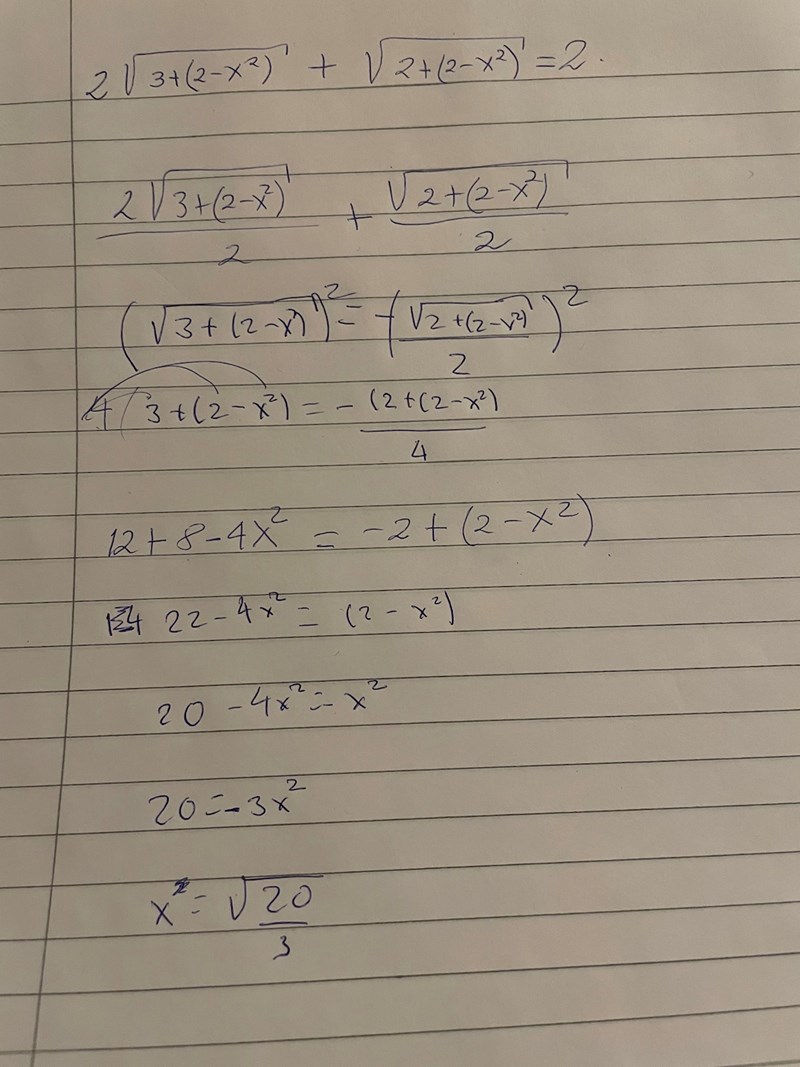 2√(3+(2-x²)) + √(2+(2-x²)) = 2.
2√(3+(2-x²))/2 + √(2+(2-x²))/2
(√(3+(2-x²)))² = -(√(2+(2-x²))/2)²
4(3+(2-x²) = -(2+(2-x²)/4
12+8-4x² = -2+(2-x²)
22-4x² = (2-x²)
20-4x² = -x²
20 = -3x²
x = √20/3